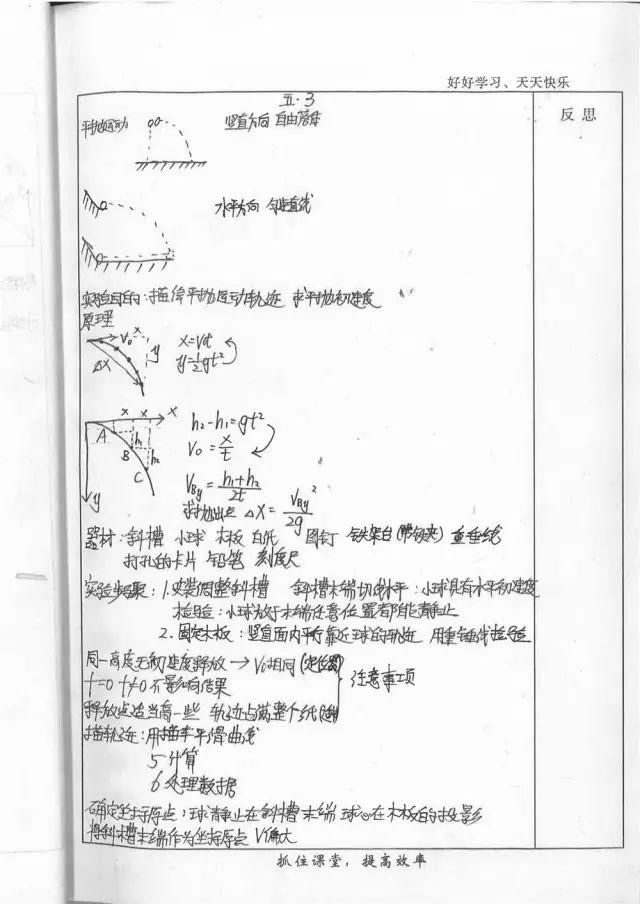 好好学习、天天快乐
五.3
反思
平抛运动 竖直方向 自由落体
水平方向 匀速直线
实验目的:描绘平抛运动轨迹 求平抛初速度
原理
V₀ x y Δx
x=Vt
y=½gt²
x x X
A B C h₁ h₂ y
h₂-h₁=gt²
V₀=x/t
V_By=(h₁+h₂)/2t
求抛出点 Δx=V_By²/2g
器材:斜槽 小球 木板 白纸 图钉 铁架台(带铁夹) 重垂线
打孔的卡片 铅笔 刻度尺
实验步骤:1.安装调整斜槽 斜槽末端切线水平:小球具有水平初速度
检验:小球放于末端任意位置都能静止
2.固定木板:竖直面内平行靠近球的轨迹 用重锤线
同一高度无初速度释放→V₀相同(定位器)
f=0 f≠0 不影响结果
注意事项
释放点适当高一些 轨迹占满整个纸
描轨迹:用 平滑曲线
5 计算
6 处理数据
确定坐标原点:球静止在斜槽末端 球心在木板的投影
将斜槽末端作为坐标原点 V偏大
抓住课堂,提高效率